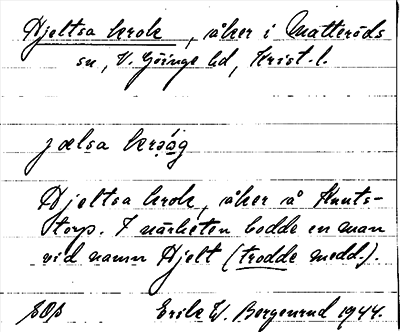 Hjeltsa krok, åker i Matteröds
sn, V. Göinge hd, Krist. l.
jælsa krọọg
Hjeltsa krok, åker å Knuts-
torp. I närheten bodde en man
vid namn Hjelt (trodde medd.).
Erik W. Bergenrud 1944.